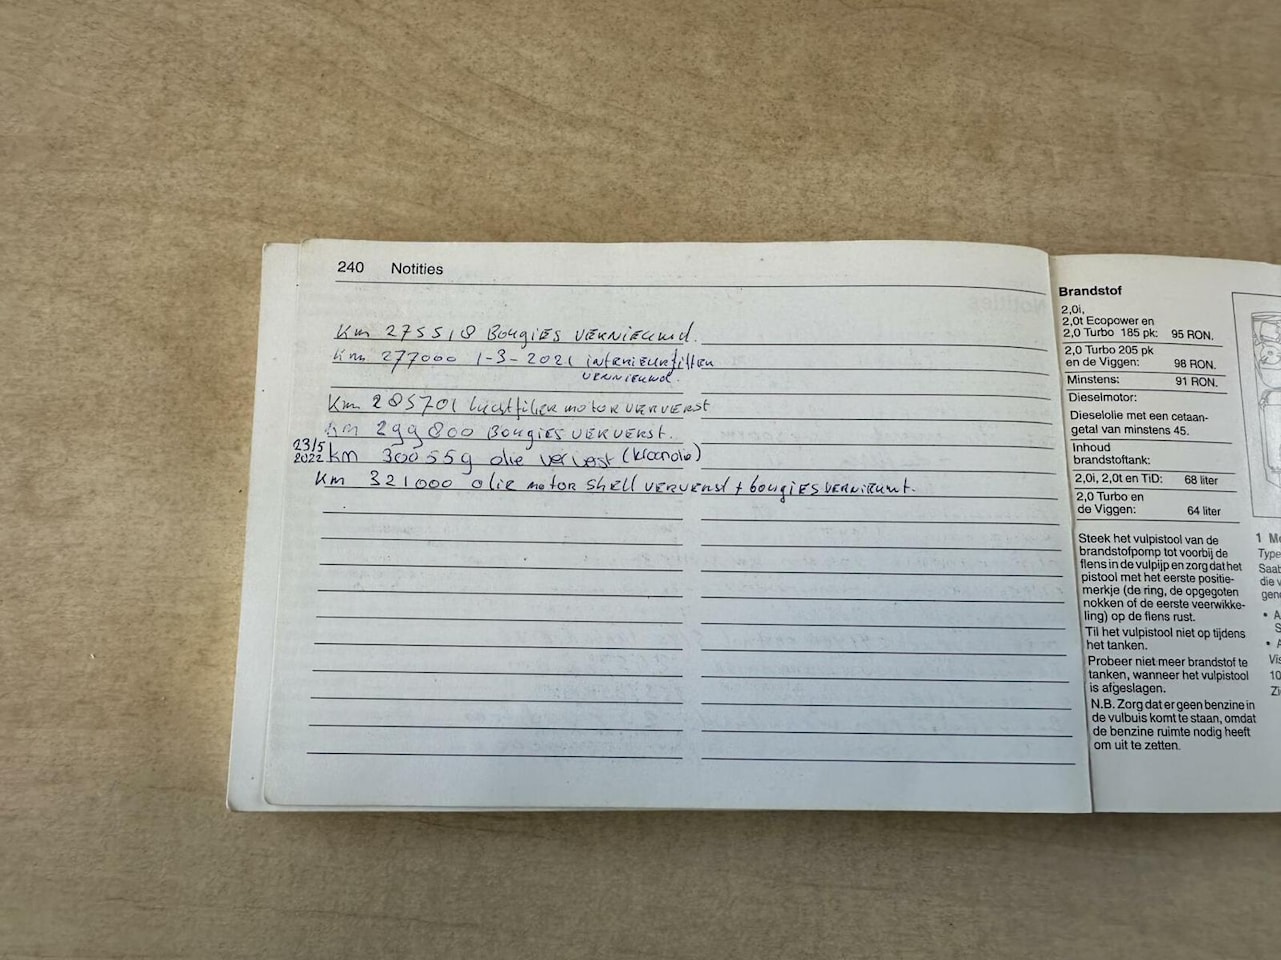 240 Notities
Km 275518 Bougies VERNIEUWD.
Km 277000 1-3-2021 interieurfilter
VERNIEUWD.
Km 285701 Luchtfilter motor VERVERST
Km 299800 Bougies VERVERST.
23/5
2022 km 300559 olie ververst (kroonolie)
Km 321000 olie motor Shell VERVERST + bougies VERNIEUWT.
Brandstof
2,0i,
2,0t Ecopower en
2,0 Turbo 185 pk: 95 RON.
2,0 Turbo 205 pk
en de Viggen: 98 RON.
Minstens: 91 RON.
Dieselmotor:
Dieselolie met een cetaan-
getal van minstens 45.
Inhoud
brandstoftank:
2,0i, 2,0t en TiD: 68 liter
2,0 Turbo en
de Viggen: 64 liter
Steek het vulpistool van de
brandstofpomp tot voorbij de
flens in de vulpijp en zorg dat het
pistool met het eerste positie-
merkje (de ring, de opgegoten
nokken of de eerste veerwikke-
ling) op de flens rust.
Til het vulpistool niet op tijdens
het tanken.
Probeer niet meer brandstof te
tanken, wanneer het vulpistool
is afgeslagen.
N.B. Zorg dat er geen benzine in
de vulbuis komt te staan, omdat
de benzine ruimte nodig heeft
om uit te zetten.
1 M
Type
Saab
die v
geno
• A
S
• A
Vis
10
Zi